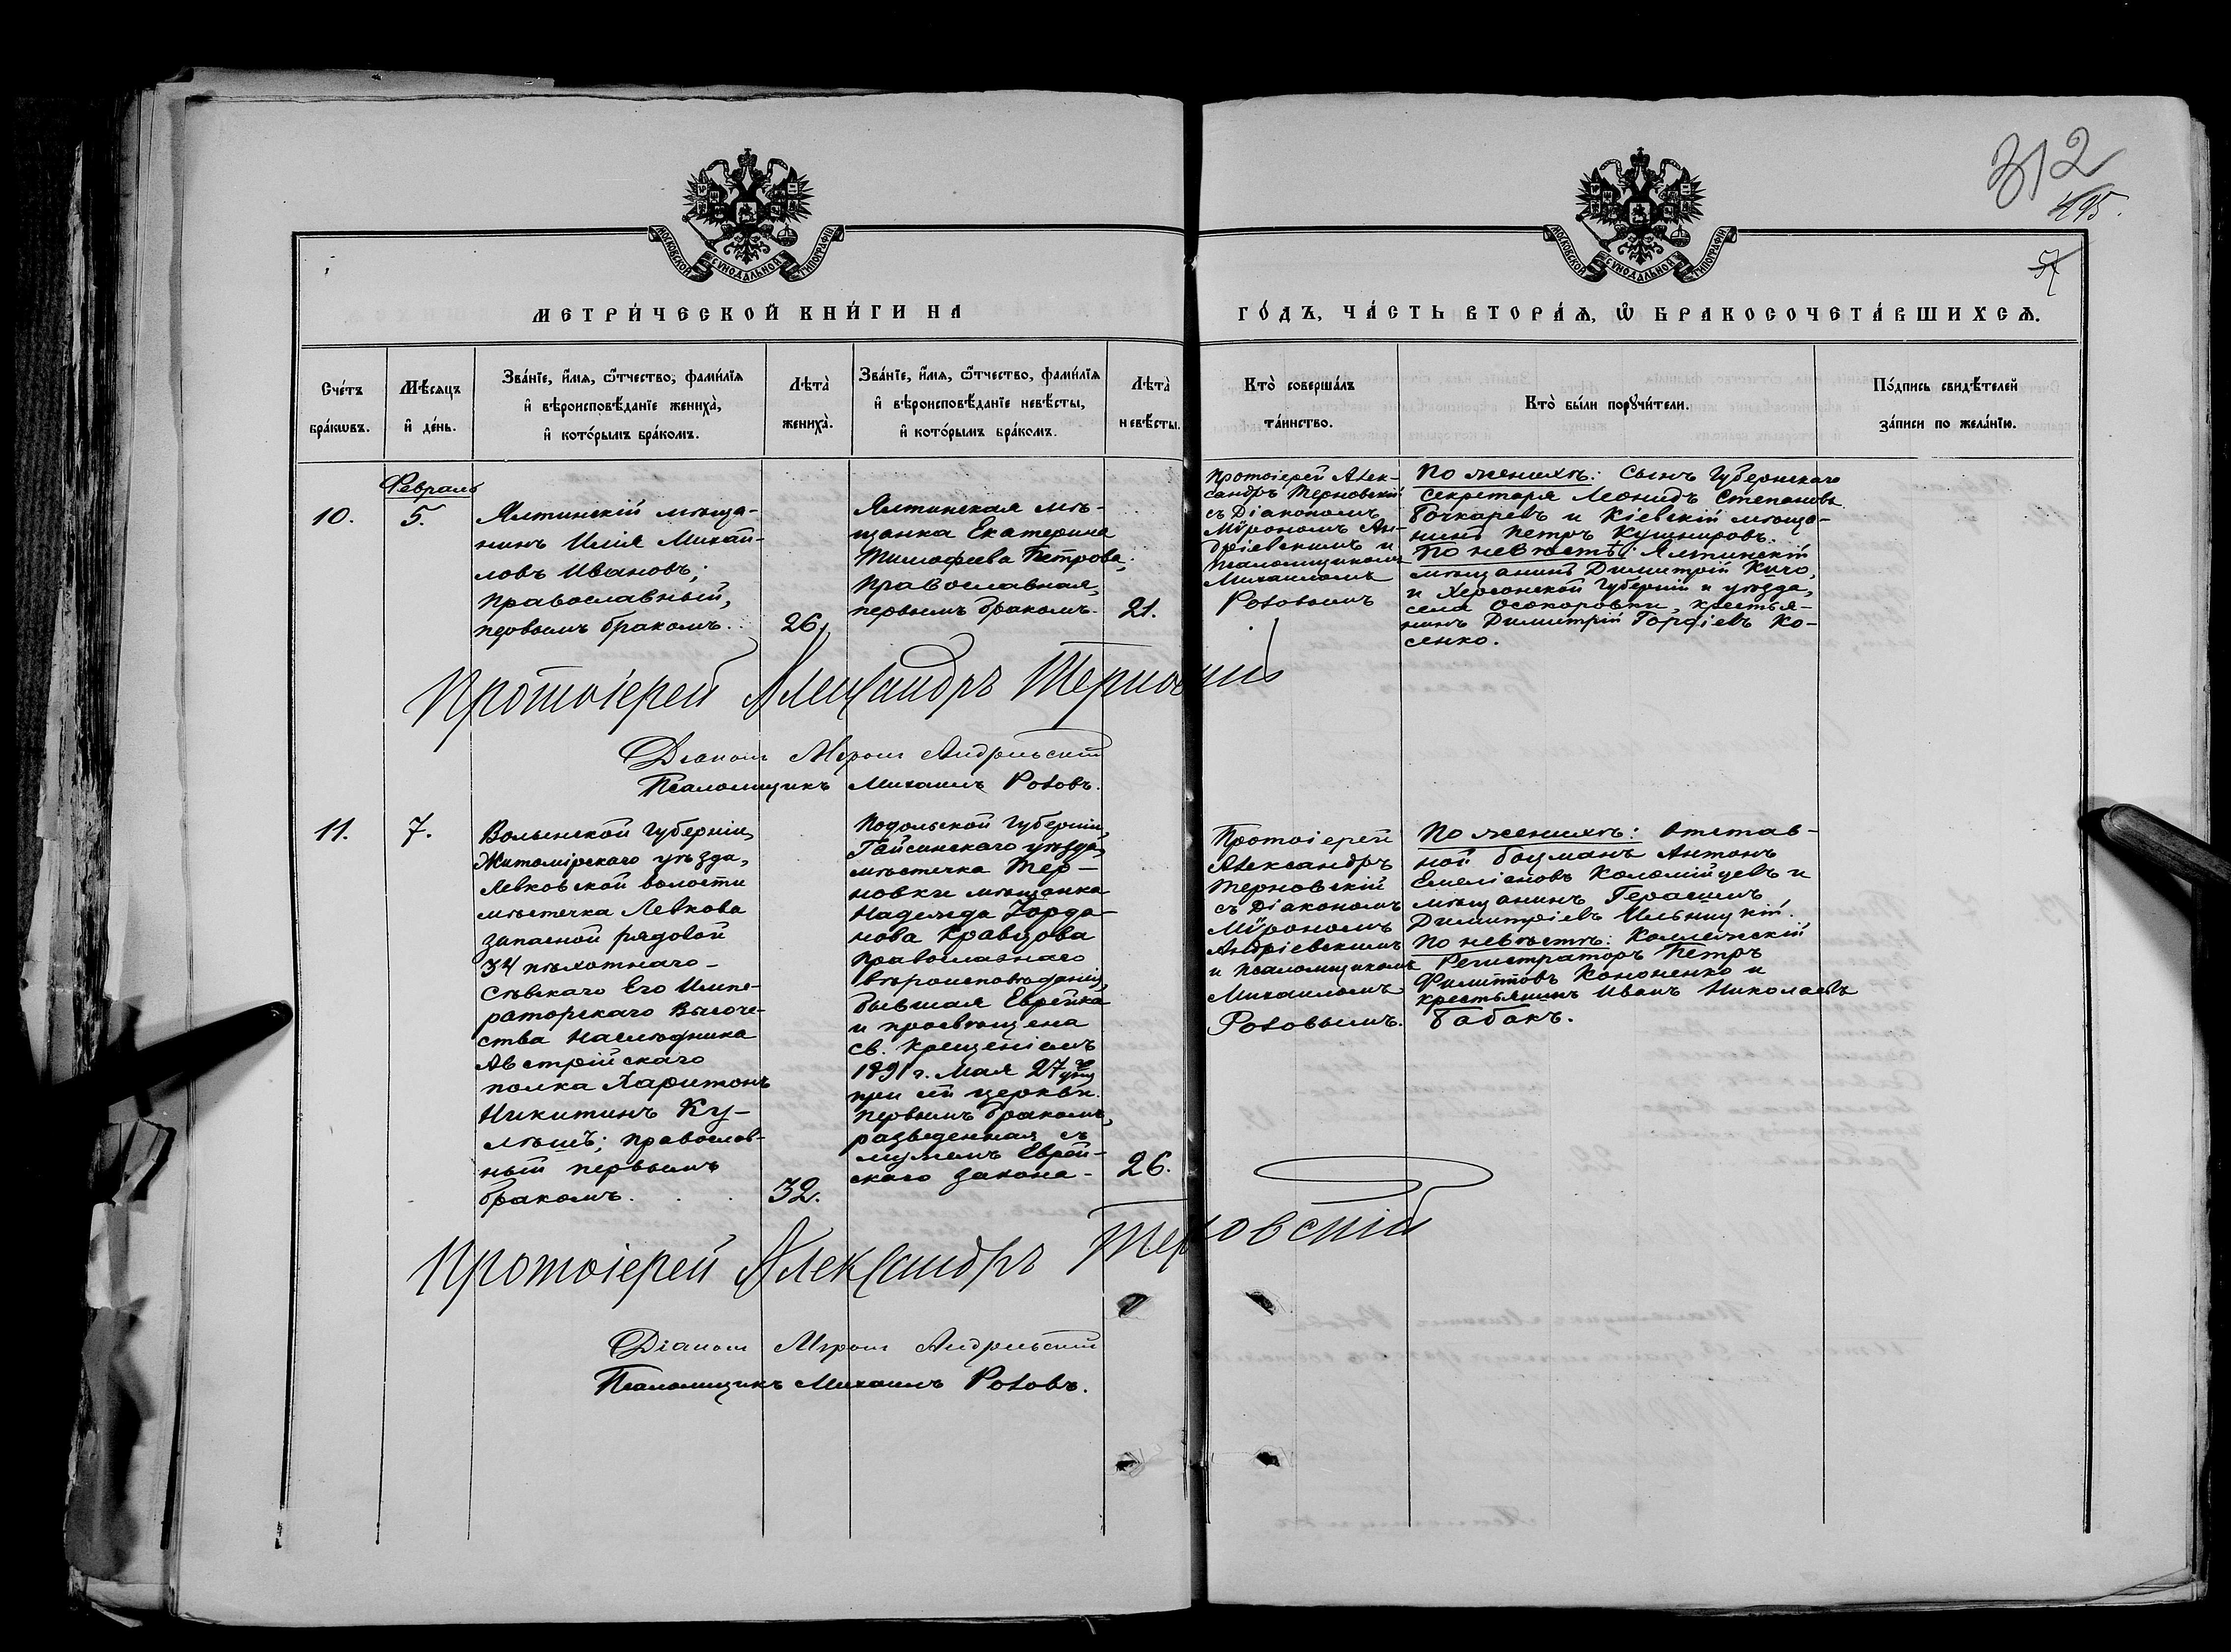 312
495.
57
МОСКОВСКОЙ СѴНОДАЛЬНОЙ ТИПОГРАФІИ
МОСКОВСКОЙ СѴНОДАЛЬНОЙ ТИПОГРАФІИ
МЕТРИ́ЧЕСКОЙ КНИ́ГИ НА
ГО́ДЪ, ЧА́СТЬ ВТОРА́Я, Ѽ БРАКОСОЧЕТА́ВШИХСЯ.
Сче́тъ
бра́кѡвъ.
Мѣ́сяцъ
и҆ де́нь.
Зва́нїе, и҆́мя, ѻ҆́тчество, фами́лїя
и҆ вѣроисповѣ́данїе жениха̀,
и҆ кото́рымъ бра́комъ.
Лѣта̀
жениха̀.
Зва́нїе, и҆́мя, ѻ҆́тчество, фами́лїя
и҆ вѣроисповѣ́данїе невѣ́сты,
и҆ кото́рымъ бра́комъ.
Лѣта̀
невѣ́сты.
Кто̀ соверша́лъ
та́инство.
Кто̀ бы́ли порꙋчи́тели.
По́дпись свидѣ́телей
за́писи по жела́нїю.
10.
Февраль
5.
Ялтинскій мѣща-
нинъ Илія Михай-
ловъ Ивановъ;
православный,
первымъ бракомъ.
26.
Ялтинская мѣ-
щанка Екатерина
Тимофеева Петрова,
православная,
первымъ бракомъ.
21.
Протоіерей Алек-
сандръ Терновскій
съ Діакономъ
Мѵрономъ Ан-
дріевскимъ и
Псаломщикомъ
Михаиломъ
Ротовымъ
По женихѣ: сынъ Губернскаго
секретаря Леонидъ Степановъ
Бочкаревъ и Кіевскій мѣща-
нинъ Петръ Кушнировъ.
По невѣстѣ: Ялтинскій
мѣщанинъ Димитрій Кичо,
и Херсонской губерніи и уѣзда,
села Осокоровки, крестья-
нинъ Димитрій Гордіевъ Ко-
сенко.
Протоіерей Александръ Терновскій
Діаконъ Мѵронъ Андріевскій
Псаломщикъ Михаилъ Ротовъ.
11.
7.
Волынской губерніи,
Житомірскаго уѣзда,
Левковской волости
мѣстечка Левкова
запасной рядовой
34 пѣхотнаго-
Сѣвскаго Его Импе-
раторскаго Высоче-
ства Наслѣдника
Австрійскаго
полка Харитонъ
Никитинъ Ку-
лѣшъ; православ-
ный первымъ
бракомъ.
32.
Подольской губерніи,
Гайсинскаго уѣзда,
мѣстечка Тер-
новки мѣщанка
Надежда Іорда-
нова Кравцова
православнаго
вѣроисповѣданія,
бывшая Еврейка
и просвѣщена
св. крещеніемъ
1891 г. Мая 27
при сей церкви.
первымъ бракомъ,
разведенная съ
мужемъ Еврей-
скаго закона-
26.
Протоіерей
Александръ
Терновскій
съ Діакономъ
Мѵрономъ
Андріевскимъ
и псаломщикомъ
Михаиломъ
Ротовымъ.
По женихѣ: отстав-
ной боцманъ Антонъ
Емеліановъ Коломійцевъ и
мѣщанинъ Герасимъ
Димитріевъ Ильницкій.
По невѣстѣ: Коллежскій
Регистраторъ Петръ
Филипповъ Кононенко и
крестьянинъ Иванъ Николаевъ
Бабакъ.
Протоіерей Александръ Терновскій
Діаконъ Мѵронъ Андріевскій
Псаломщикъ Михаилъ Ротовъ.